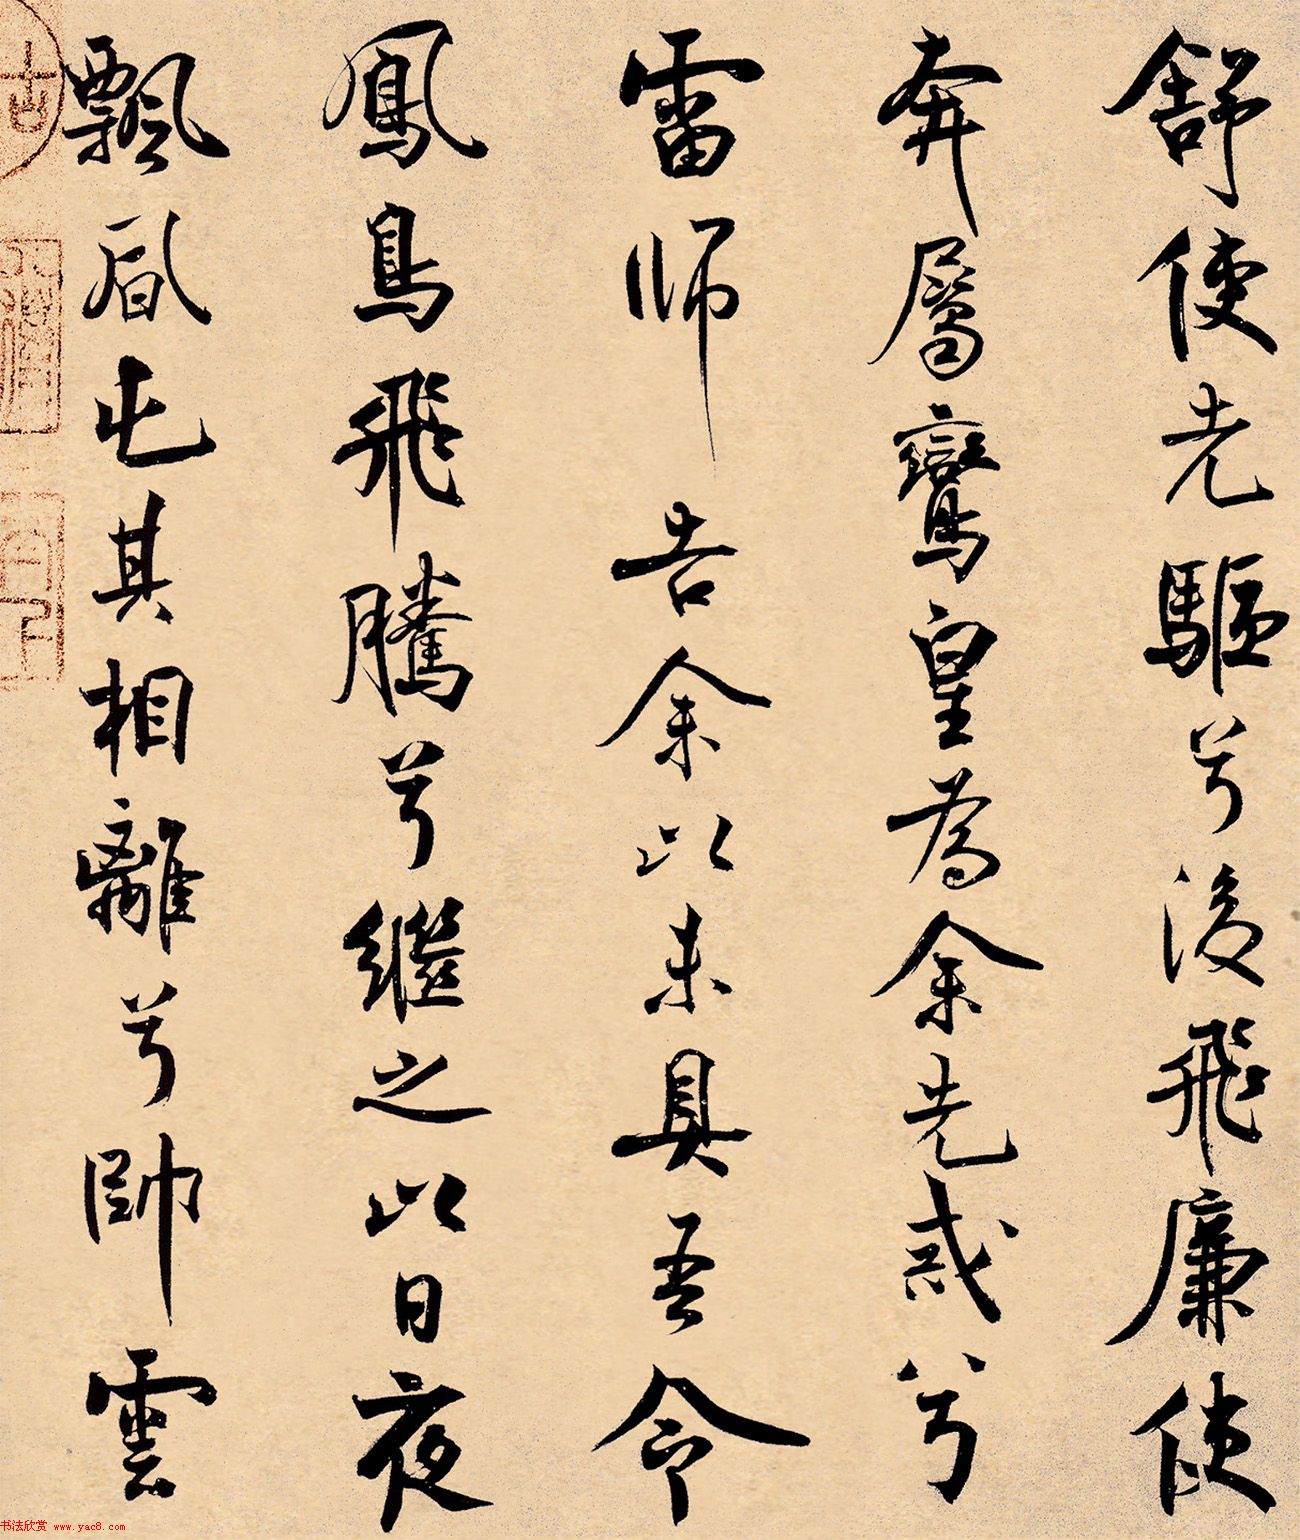 舒使先驅兮後飛廉使
奔屬鸞皇為余先戒兮
雷師告余以未具吾令
鳳鳥飛騰兮繼之以日夜
飄風屯其相離兮帥雲
书法欣赏 www.yac8.com